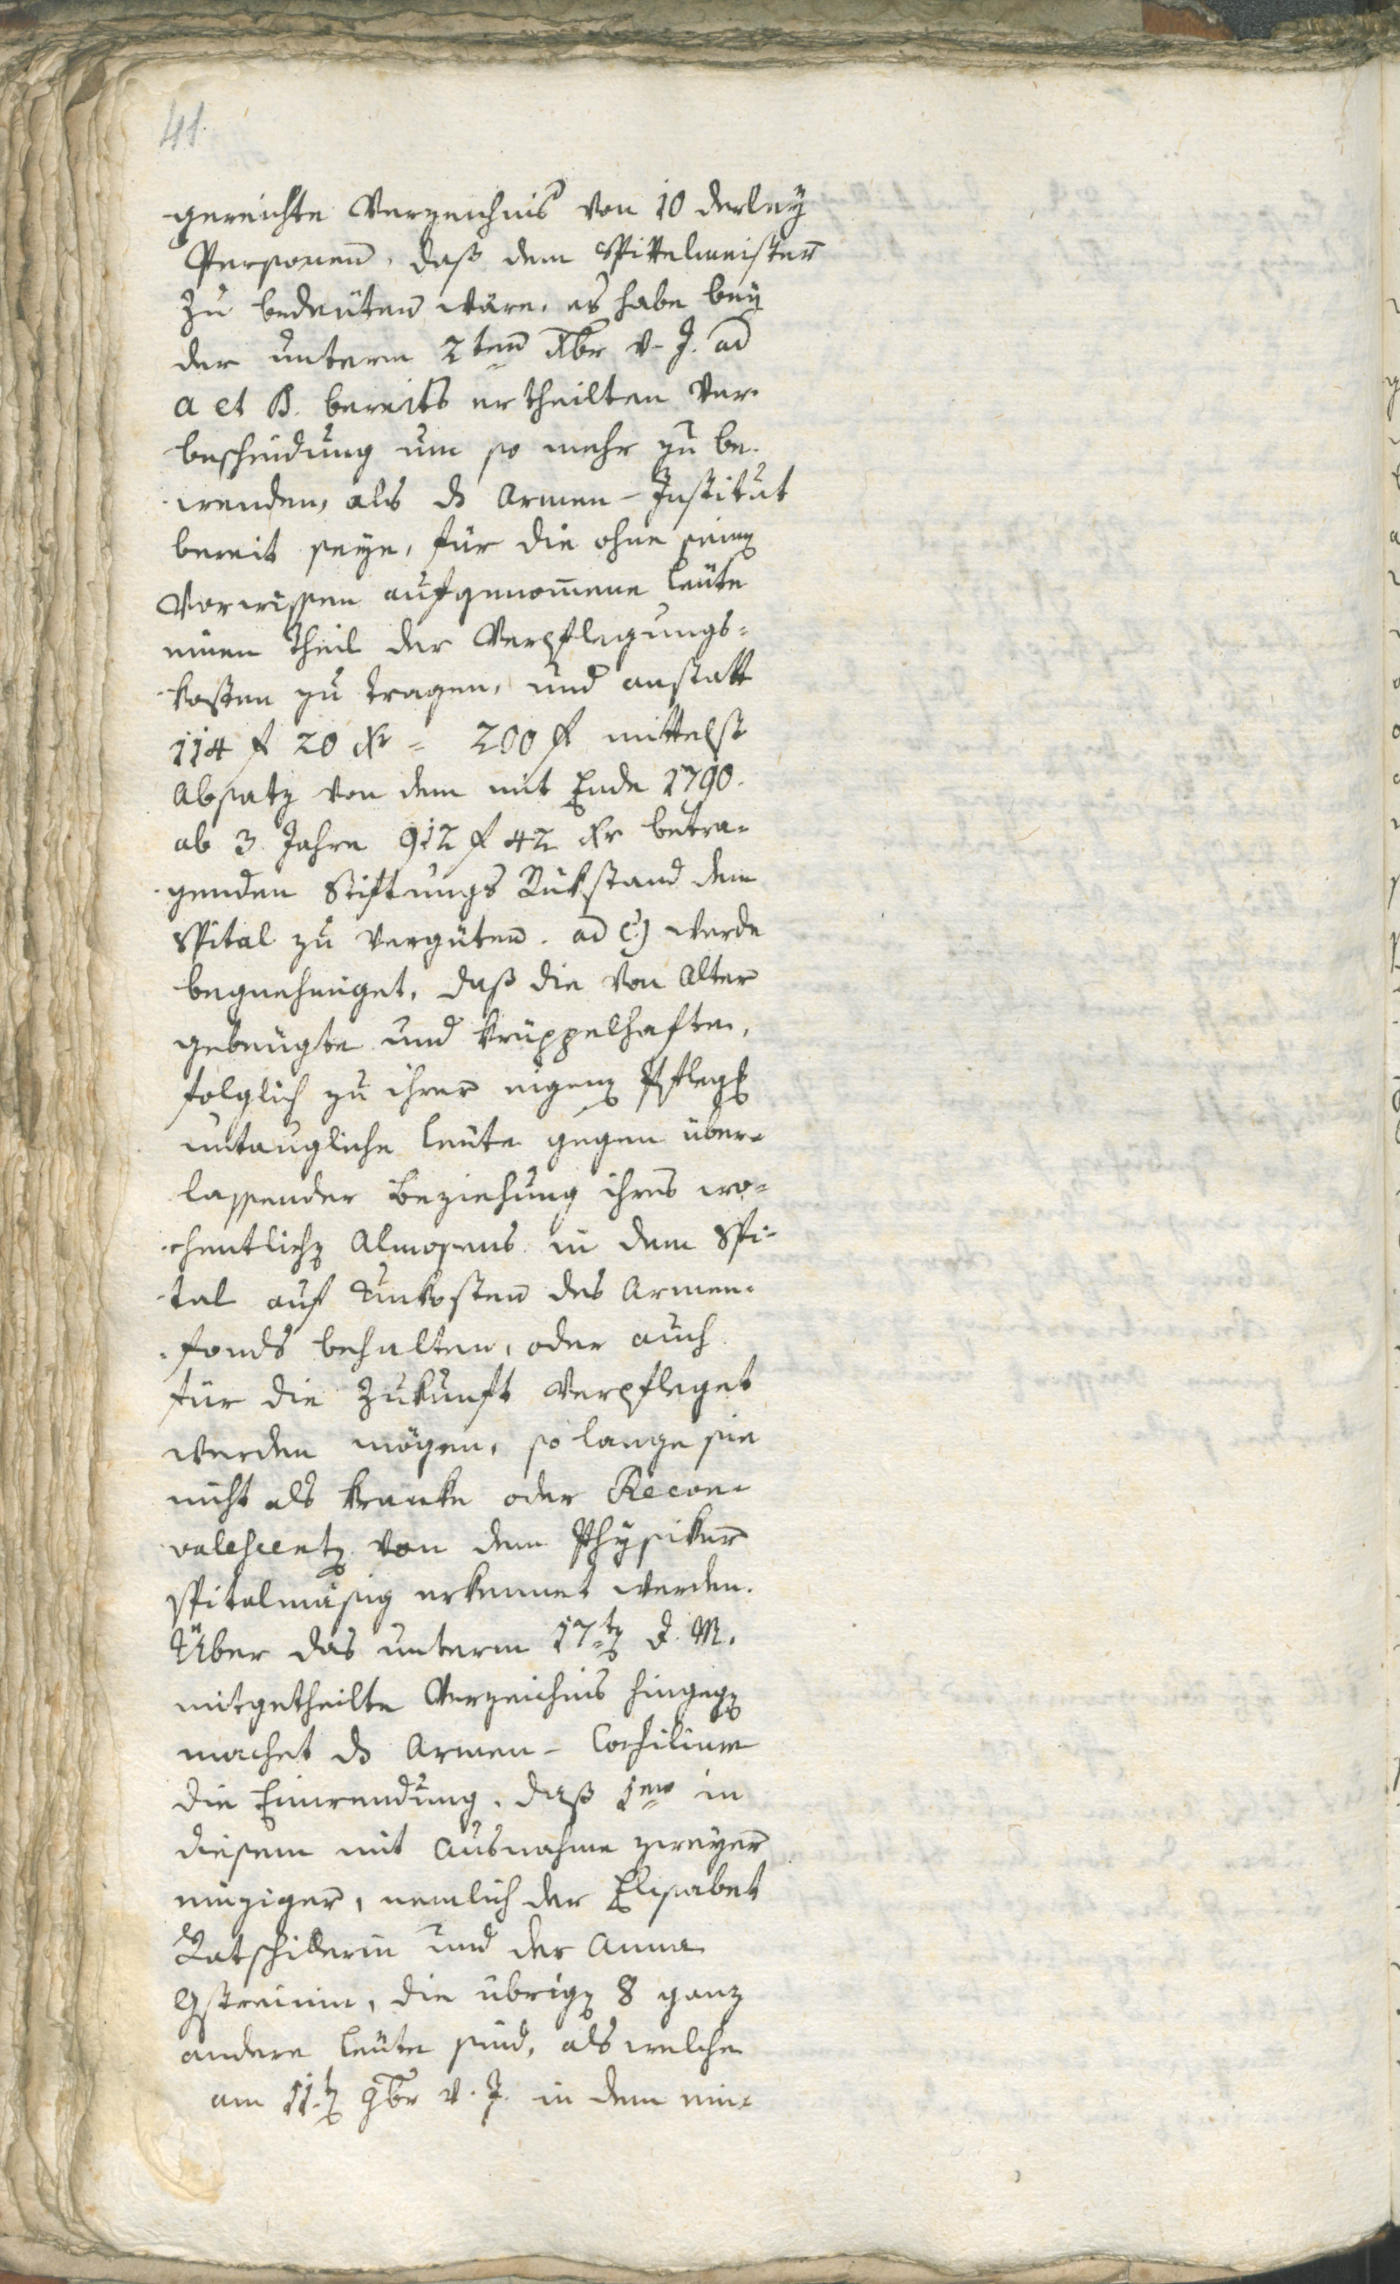 41.
gereichte Verzeichnis von 10 derley
Personen, daß dem Spittelmeister
zu bedeuten wäre, es habe bey
der unterm 2ten Xbr v. J. ad
a et B. bereits ertheilten Ver-
bescheidung um so mehr zu be-
wenden, als ds Armen-Institut
bereit seye, für die ohne seine
Vorwissen aufgenommene Leute
einen Theil der Verpflegungs=
kosten zu tragen, und anstatt
114 f 20 xr = 200 f mittelst
Absatz von dem mit Ende 1790.
ab 3 Jahre 912 f 42 xr betra-
genden Stiftungs Rükstand dem
Spital zu vergüten. ad C) werde
begnehmiget, daß die von Alter
gebeugte und krüppelhaften,
folglich zu ihrer eigen Pfleg
untaugliche Leute gegen über-
lassender Beziehung ihres wo-
chentlichen Almosens in dem Spi-
tal auf Unkosten des Armen-
fonds behalten, oder auch
für die Zukunft verpfleget
werden mögen, so lange sie
nicht als kranke oder Recon-
valescenten von dem Physiker
spitalmäsig erkennet werden.
Über das unterm 17ten d. M.
mitgetheilte Verzeichnis hingegen
machet ds Armen-Consilium
die Einwendung, daß 1mo in
diesem mit Ausnahme zweyer
einziger, nemlich der Elisabet
Latschillerin und der Anna
Gstreinin, die übrigen 8 ganz
andere Leute sind, als welche
am 11ten 9br v. J. in dem ein-